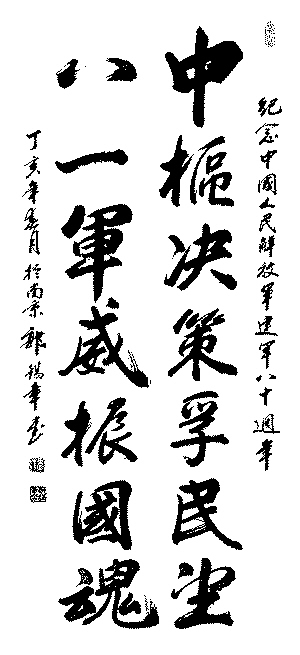 紀念中國人民解放軍建軍八十週年
中樞决策孚民望
八一軍威振國魂
丁亥年夏月於南京